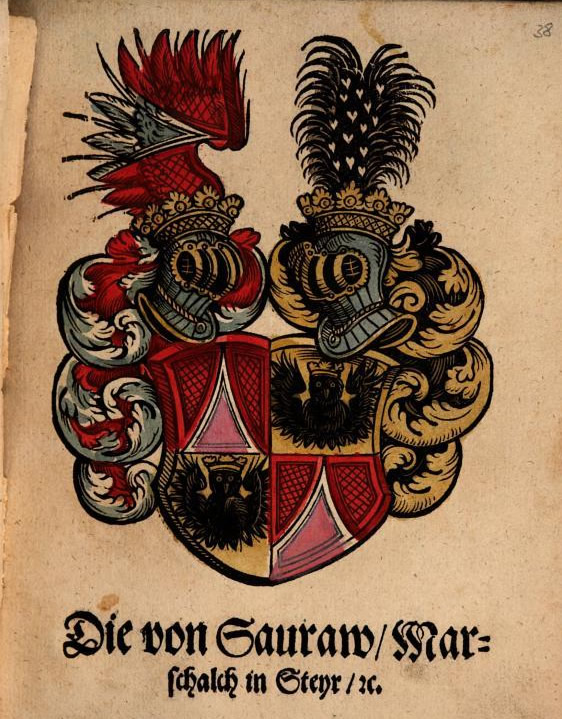 38
Die von Sauraw/Mar⸗
schalch in Steyr/ꝛc.